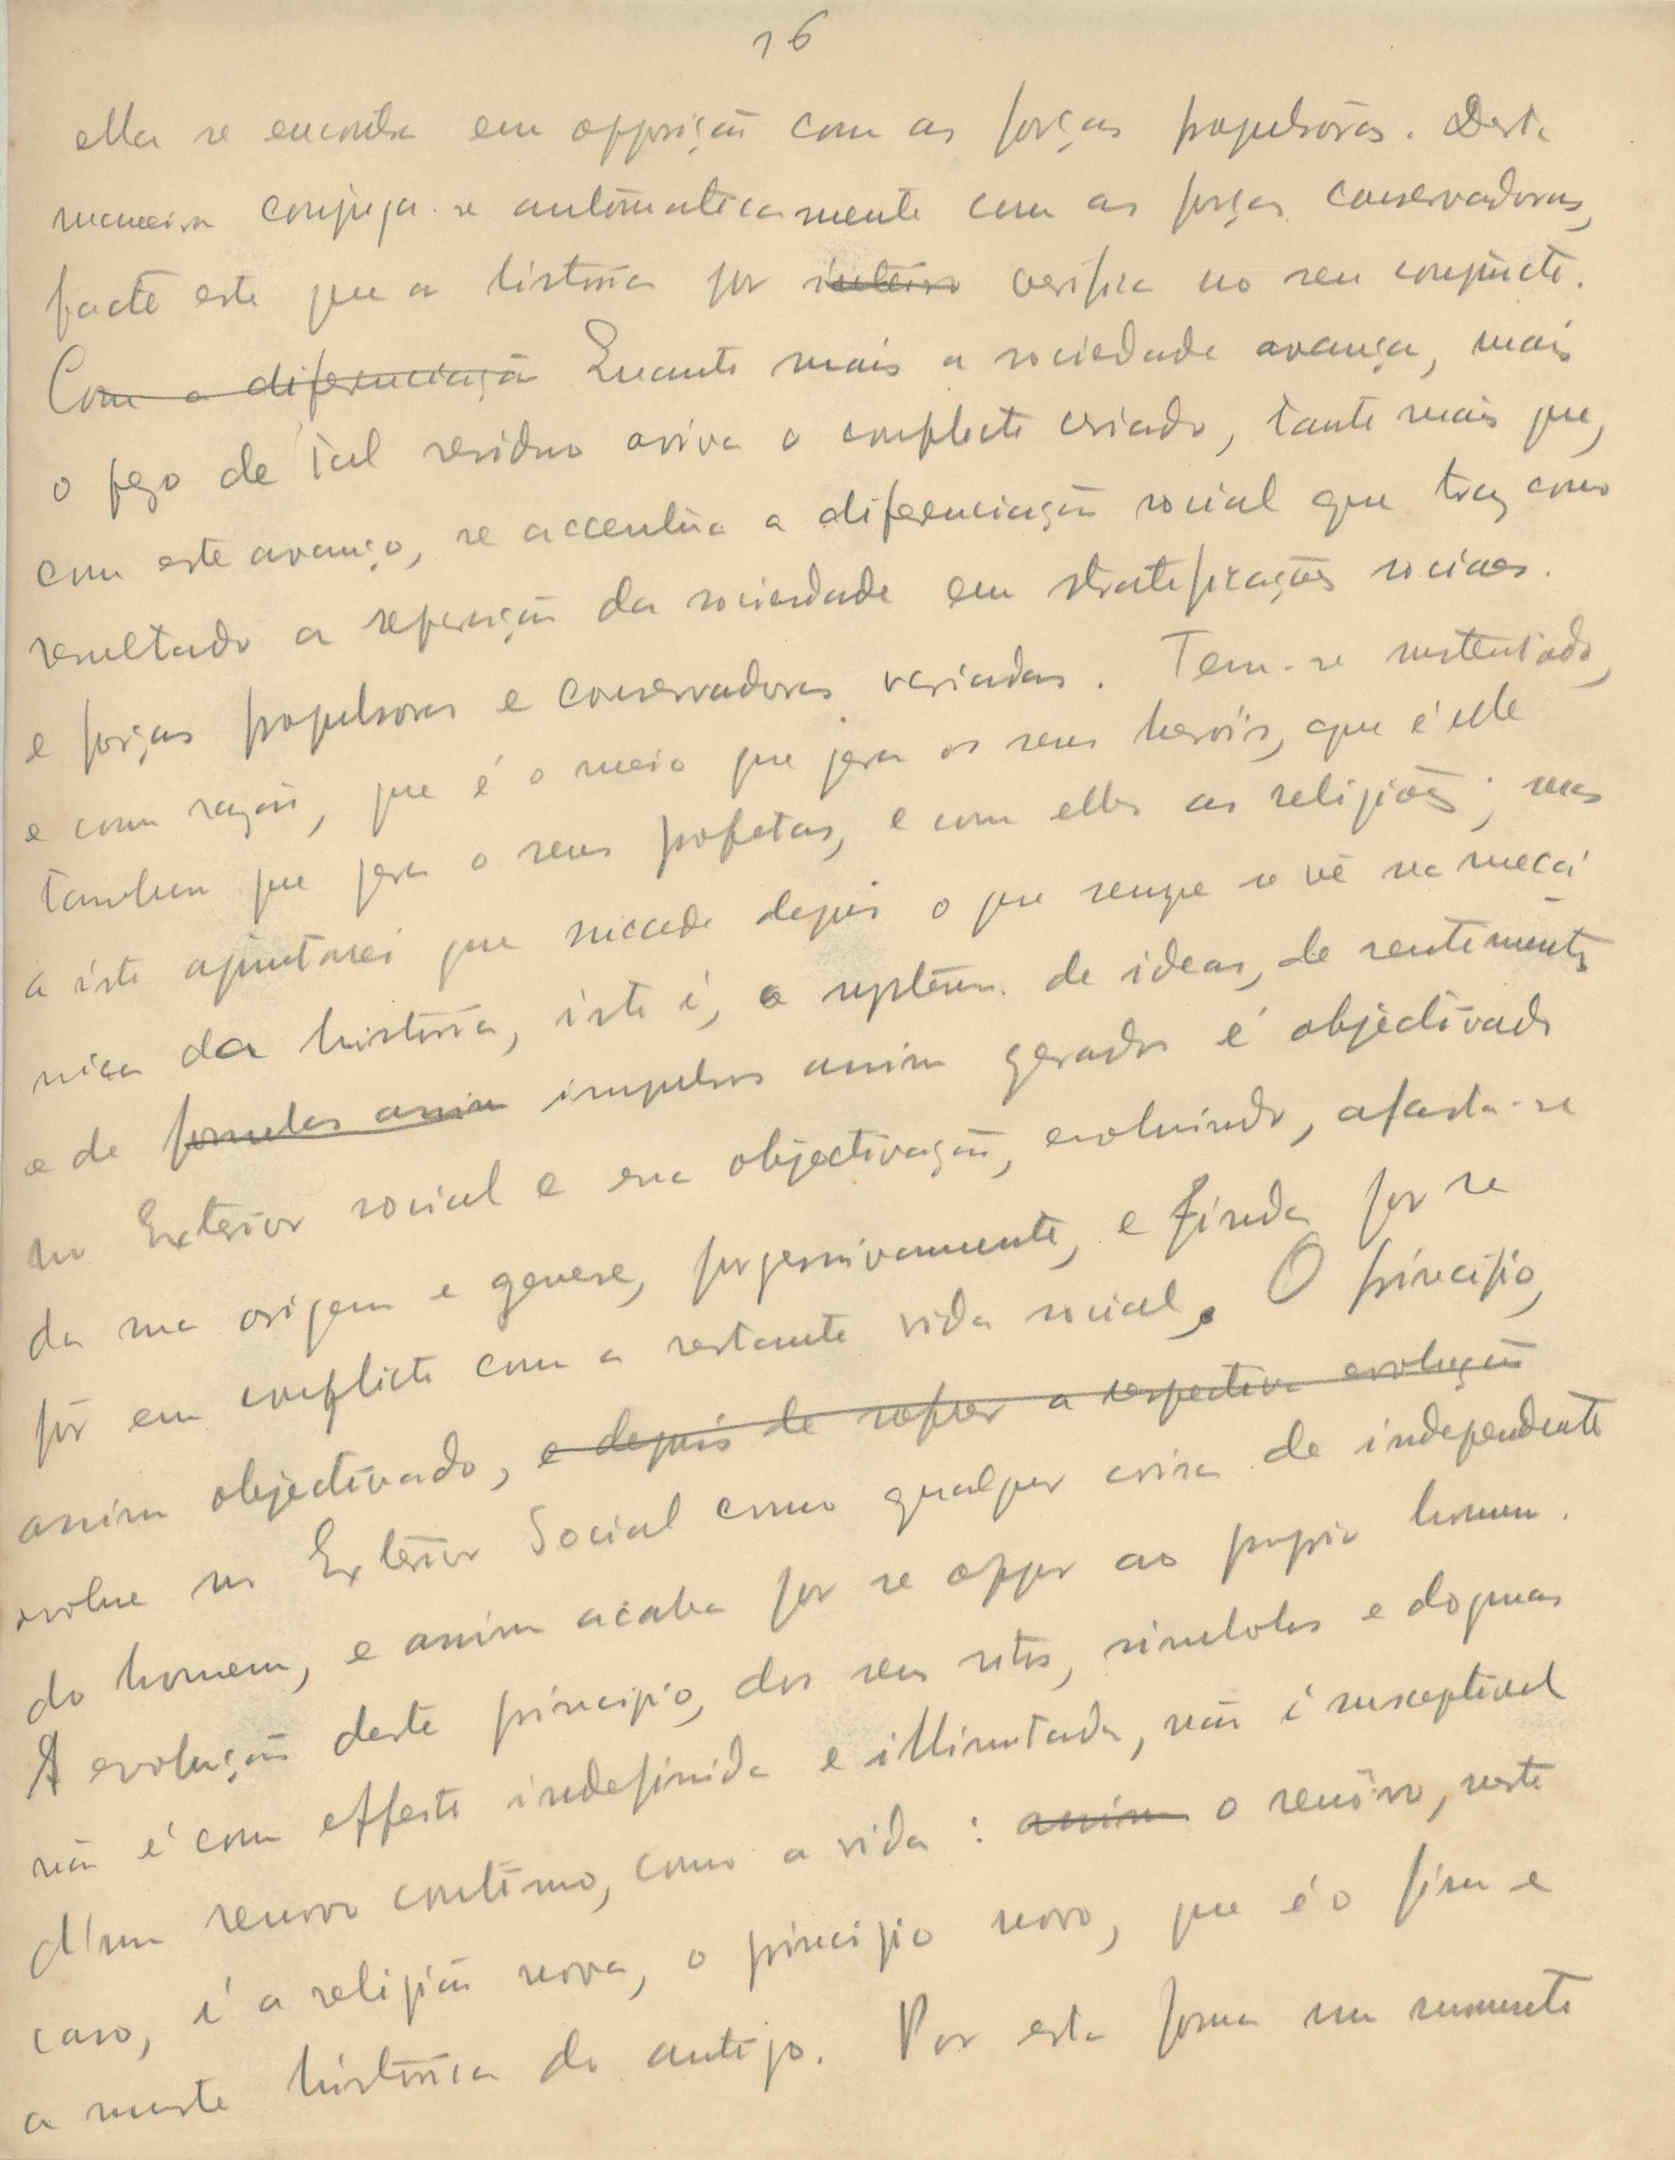 16
ella se encontra em opposição com as forças propulsoras. Desta
maneira conjuga-se automaticamente com as forças conservadoras,
facto este que a historia por inteiro verifica no seu conjuncto.
Com a diferenciação Quanto mais a sociedade avança, mais
o peso de tal residuo aviva o conflicto criado, tanto mais que,
com este avanço, se accentúa a diferenciação social que traz como
resultado a separação da sociedade em stratificações sociaes.
e forças propulsoras e conservadoras variadas. Tem-se sustentado,
e com razão, que é o meio que gera os seus heróis, que é elle
tambem que gera o seus profetas, e com elles as religiões; mas
a isto ajuntarei que succede depois o que sempre se vê na mecâ
nica da historia, isto é, o systema de ideas, de sentimentos
e de formulas assim impulsos assim gerados é objectivado
no Exterior social e essa objectivação, evoluindo, afasta-se
da sua origem e genese, progressivamente, e finda por se
pôr em conflicto com a restante vida social. O principio,
assim objectivado, e depois de sofrer a respectiva evolução
evolue no Exterior Social como qualquer coisa de independente
do homem, e assim acaba por se oppor ao proprio homem.
A evolução deste principio, dos seus ritos, simbolos e dogmas
não é com effeito indefinida e illimitada, não é susceptivel
d'um renovo contínuo, como a vida: assim o renôvo, neste
caso, é a religião nova, o principio novo, que é o fim e
a morte histórica do antigo. Por esta forma um momento